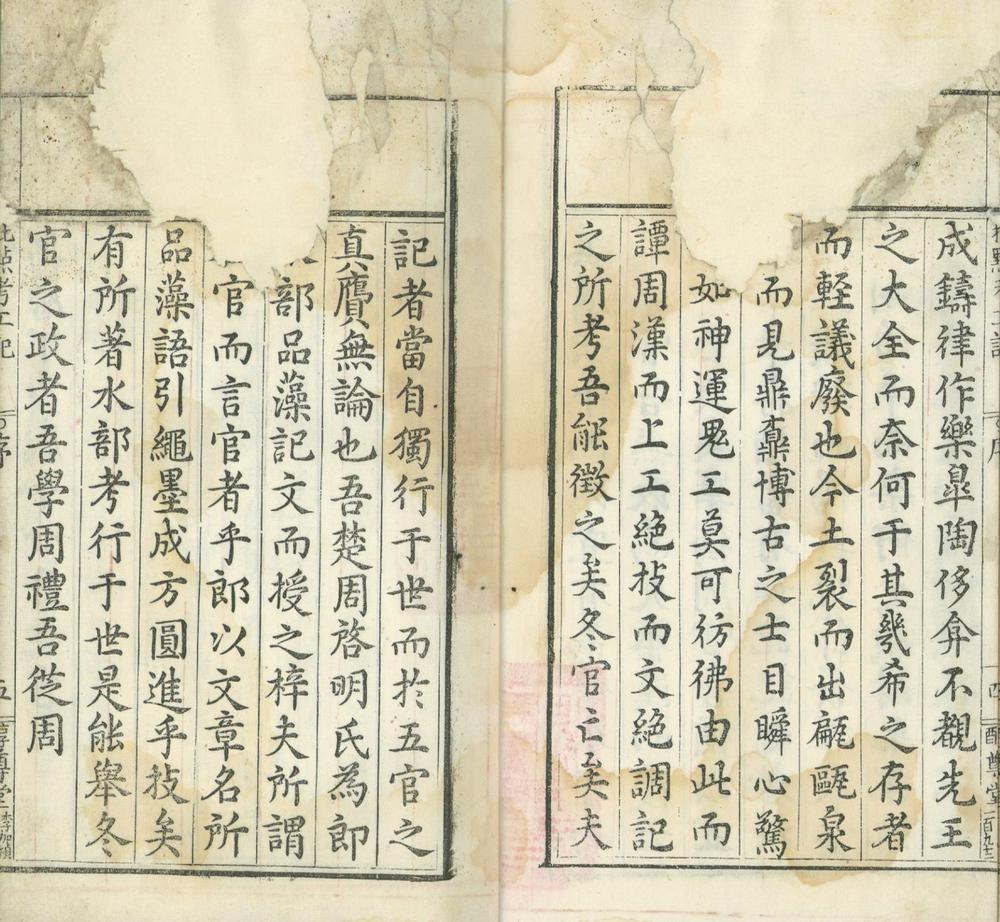 成鑄律作樂皐陶侈弇不覩先王
之大全而奈何于其幾希之存者
而輕議廢也今土裂而出甗甌泉
而見鼎鼒博古之士目瞬心驚
如神運鬼工莫可彷彿由此而
譚周漢而上工絕技而文絕調記
之所考吾能徵之矣冬官亡矣夫
記者當自獨行于世而於五官之
真贗無論也吾楚周啓明氏為郎
部品藻記文而授之梓夫所謂
官而言官者乎郎以文章名所
品藻語引繩墨成方圓進乎技矣
有所著水部考行于世是能舉冬
官之政者吾學周禮吾從周
批點考工記 序 五